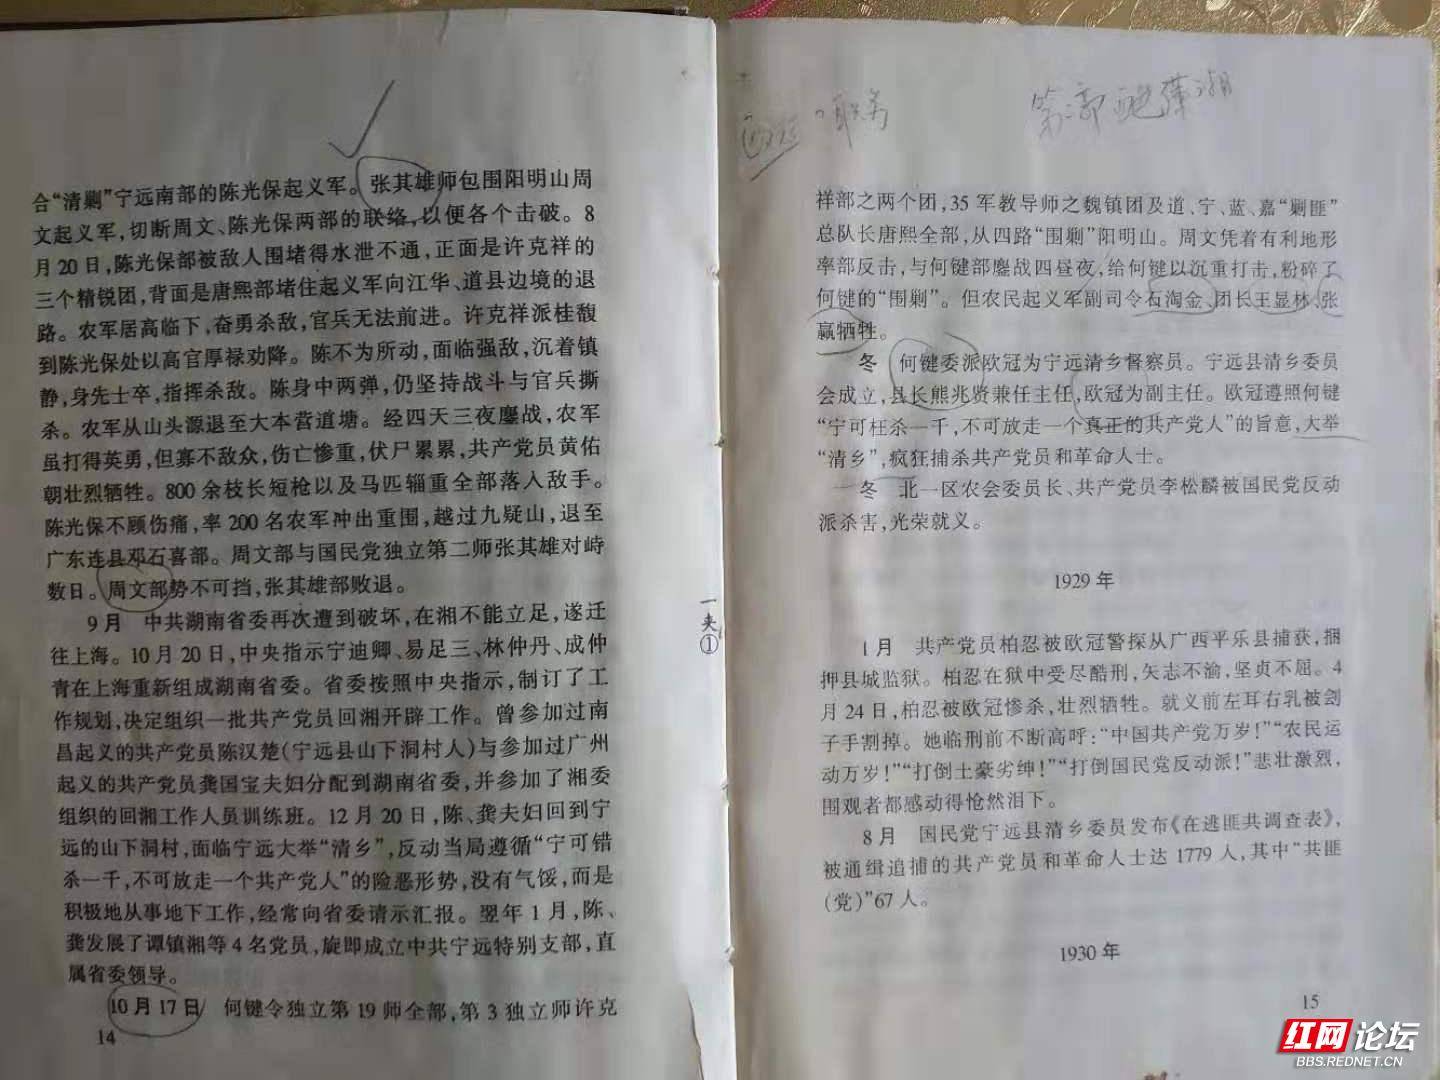 合“清剿”宁远南部的陈光保起义军。张其雄师包围阳明山周
文起义军,切断周文、陈光保两部的联络,以便各个击破。8
月20日,陈光保部被敌人围堵得水泄不通,正面是许克祥的
三个精锐团,背面是唐熙部堵住起义军向江华、道县边境的退
路。农军居高临下,奋勇杀敌,官兵无法前进。许克祥派桂馥
到陈光保处以高官厚禄劝降。陈不为所动,面临强敌,沉着镇
静,身先士卒,指挥杀敌。陈身中两弹,仍坚持战斗与官兵撕
杀。农军从山头源退至大本营道塘。经四天三夜鏖战,农军
虽打得英勇,但寡不敌众,伤亡惨重,伏尸累累,共产党员黄佑
朝壮烈牺牲。800余枝长短枪以及马匹辎重全部落入敌手。
陈光保不顾伤痛,率200名农军冲出重围,越过九疑山,退至
广东连县邓石喜部。周文部与国民党独立第二师张其雄对峙
数日。周文部势不可挡,张其雄部败退。
9月 中共湖南省委再次遭到破坏,在湘不能立足,遂迁
往上海。10月20日,中央指示宁迪卿、易足三、林仲丹、成仲
青在上海重新组成湖南省委。省委按照中央指示,制订了工
作规划,决定组织一批共产党员回湘开辟工作。曾参加过南
昌起义的共产党员陈汉楚(宁远县山下洞村人)与参加过广州
起义的共产党员龚国宝夫妇分配到湖南省委,并参加了湘委
组织的回湘工作人员训练班。12月20日,陈、龚夫妇回到宁
远的山下洞村,面临宁远大举“清乡”,反动当局遵循“宁可错
杀一千,不可放走一个共产党人”的险恶形势,没有气馁,而是
积极地从事地下工作,经常向省委请示汇报。翌年1月,陈、
龚发展了谭镇湘等4名党员,旋即成立中共宁远特别支部,直
属省委领导。
10月17日 何键令独立第19师全部,第3独立师许克
14
一夹①
第二部
祥部之两个团,35军教导师之魏镇团及道、宁、蓝、嘉“剿匪”
总队长唐熙全部,从四路“围剿”阳明山。周文凭着有利地形
率部反击,与何键部鏖战四昼夜,给何键以沉重打击,粉碎了
何键的“围剿”。但农民起义军副司令石淘金、团长王显林、张
赢牺牲。
冬 何键委派欧冠为宁远清乡督察员。宁远县清乡委员
会成立,县长熊兆贤兼任主任,欧冠为副主任。欧冠遵照何键
“宁可枉杀一千,不可放走一个真正的共产党人”的旨意,大举
“清乡”,疯狂捕杀共产党员和革命人士。
冬 北一区农会委员长、共产党员李松麟被国民党反动
派杀害,光荣就义。
1929年
1月 共产党员柏忍被欧冠警探从广西平乐县捕获,捆
押县城监狱。柏忍在狱中受尽酷刑,矢志不渝,坚贞不屈。4
月24日,柏忍被欧冠惨杀,壮烈牺牲。就义前左耳右乳被刽
子手割掉。她临刑前不断高呼:“中国共产党万岁!”“农民运
动万岁!”“打倒土豪劣绅!”“打倒国民党反动派!”悲壮激烈,
围观者都感动得怆然泪下。
8月 国民党宁远县清乡委员发布《在逃匪共调查表》,
被通缉追捕的共产党员和革命人士达1779人,其中“共匪
(党)”67人。
1930年
15
红网论坛
BBS.REDNET.CN